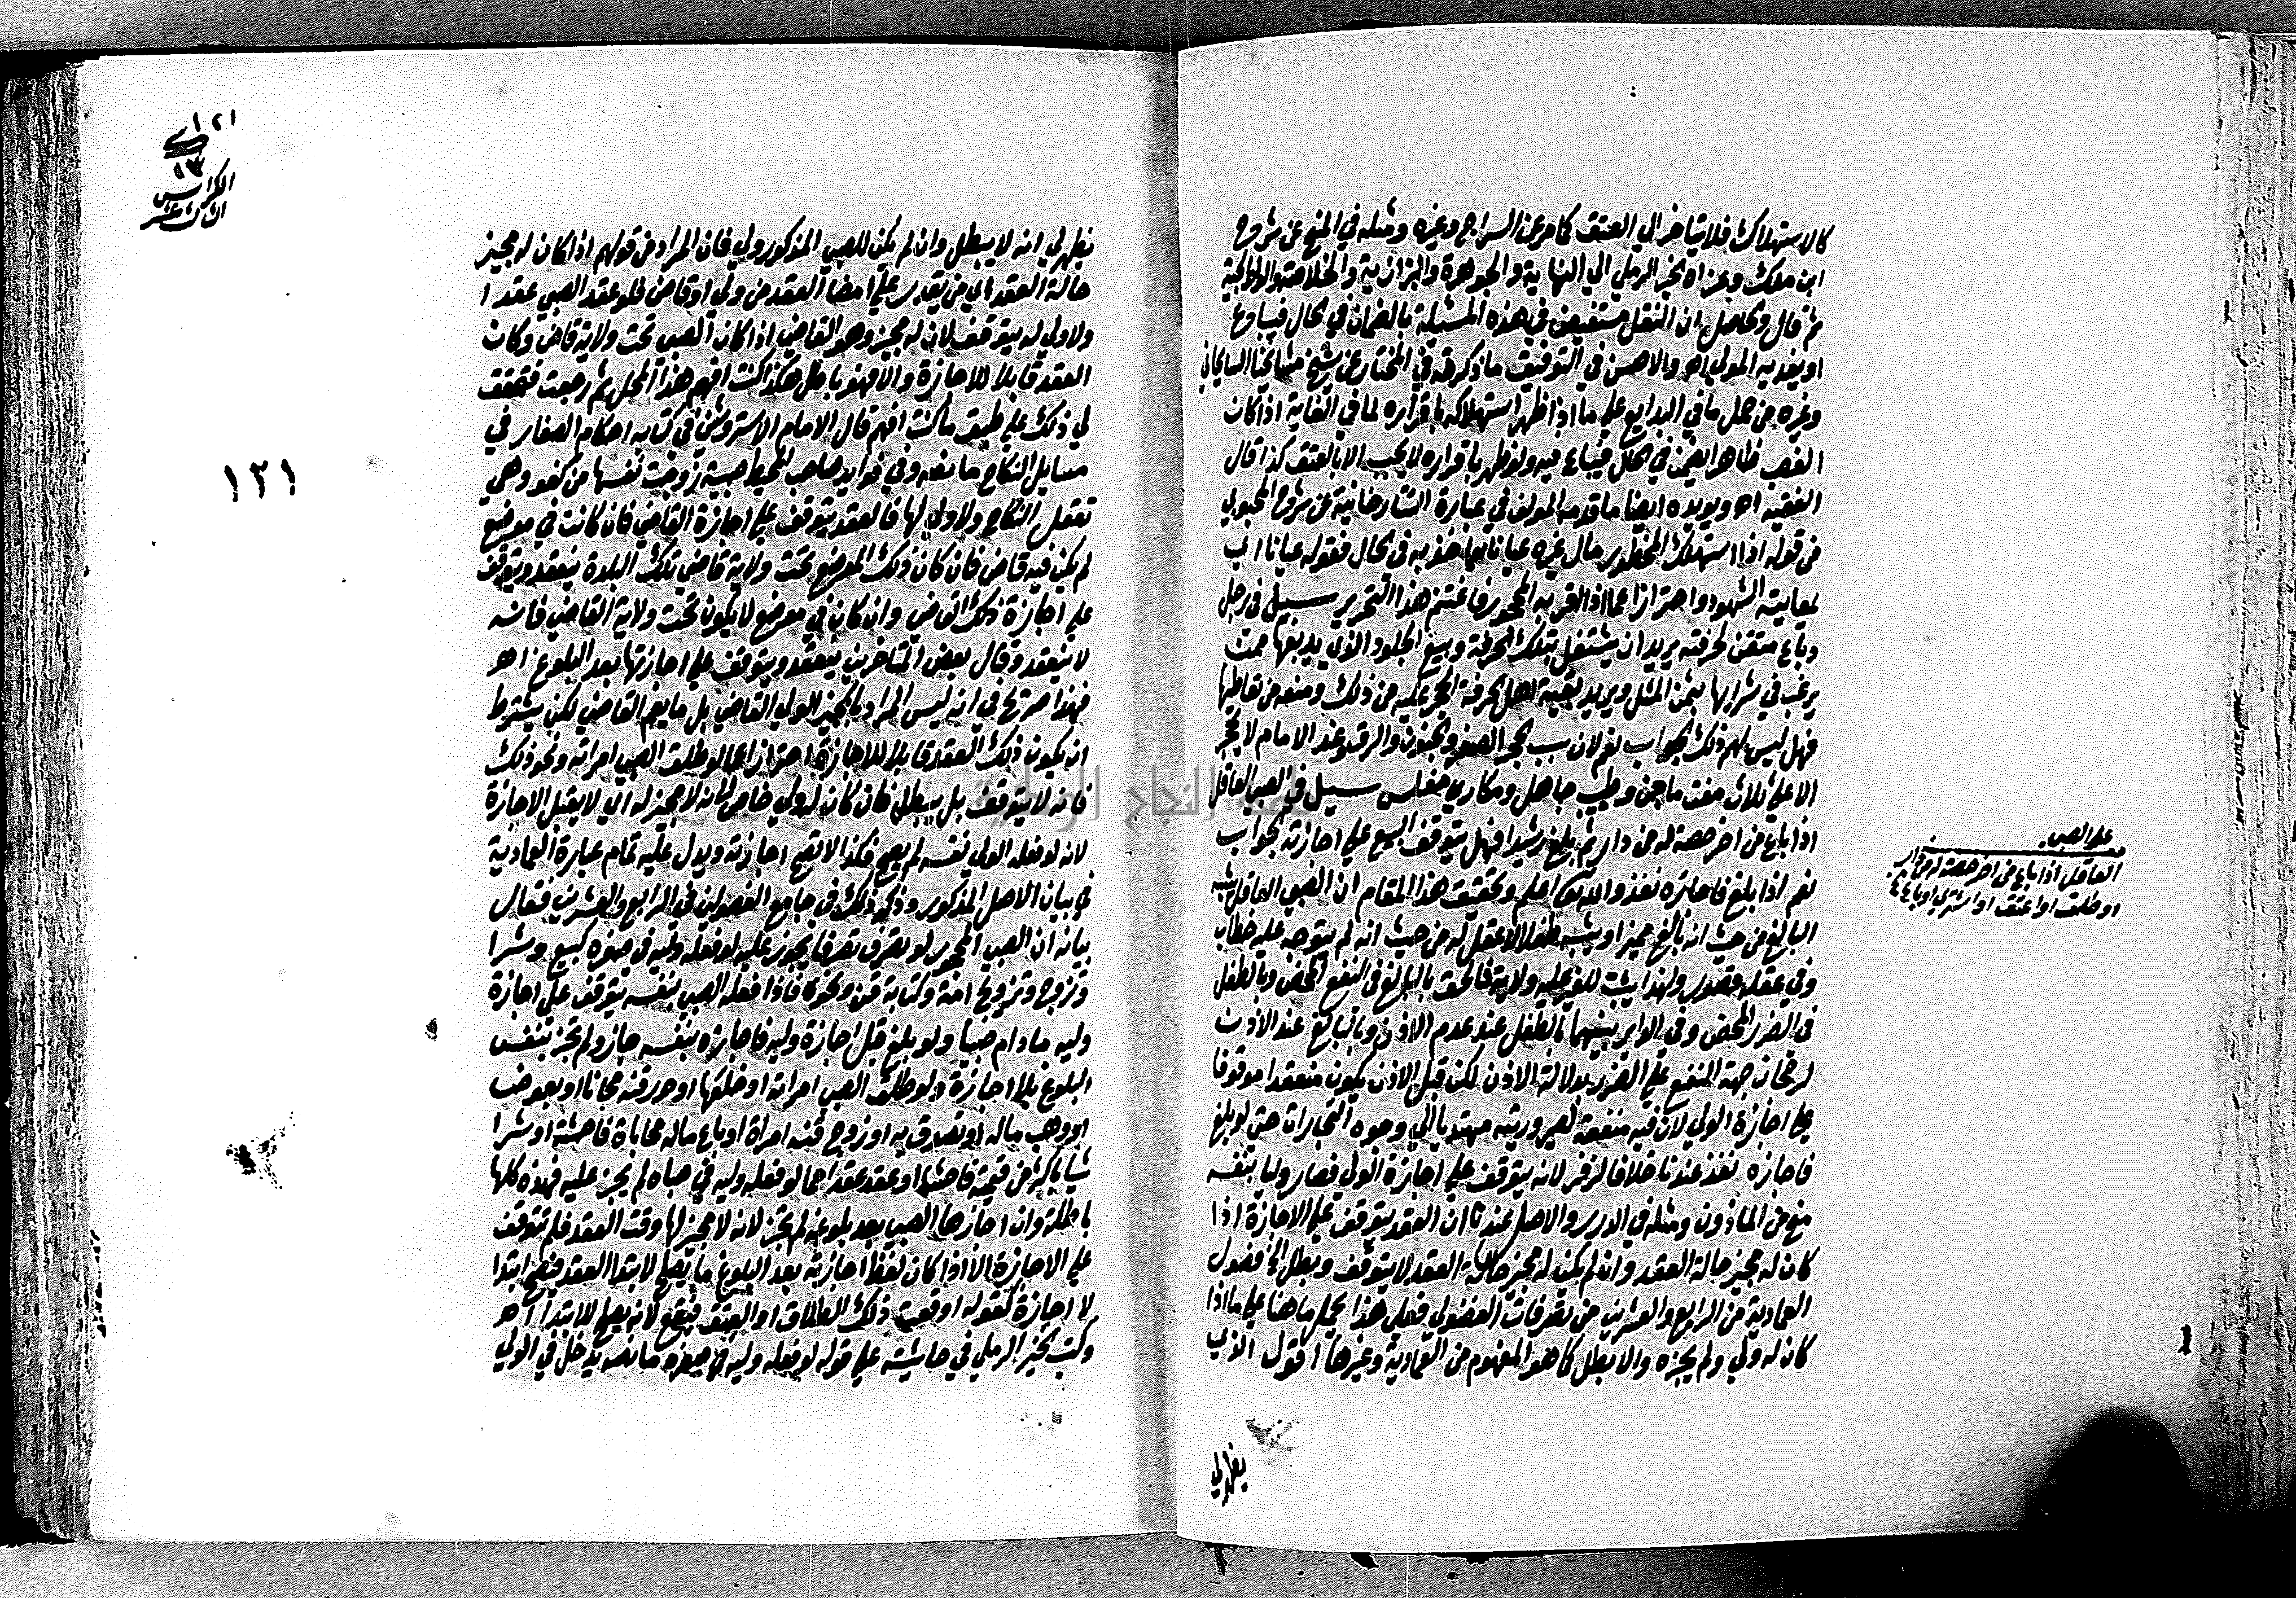 كالاستهلاك فلا يتاخر الي العتق كما مر عن السراج وغيره ومثله في المنح عن شروح
ابن ملك وعزاه الخير الرملي الي النهاية والجوهرة والبزازية والخلاصة والولوالجية
ثم قال والحاصل ان النقل مستفيض في هذه المسئلة بالضمان في الحال فيباع
او يفديه المولي اهـ والاحسن في التوفيق ما ذكرته في المختار عن شيخ مشايخنا السايحاني
وغيره من حمل ما في البدايع علي ما اذا ظهر استهلاكه باقراره لما في الغاية اذا كان
الغصب ظاهرا يضمن في الحال فيباع فيه ولو ظهر باقراره لا يجب الا بالعتق كذا قال
الفقيه اهـ ويويده ايضا ما قدمه المولف في عبارة التتارخانية عن شروح المحبوبي
من قوله اذا استهلك المحظور مال غيره عيانا يواخذ به في الحال فقوله عيانا اي
لمعاينة الشهود احترازا عما اذا اقر به المحجور فاغتنم هذا التحرير سيل في رجل
دباغ متقن لحرفته يريد ان يشتغل بتلك الحرفة وبيع الجلود الذي يدبغها ممن
يرغب في شرايها بثمن المثل ويريد بقية اهل الحرفة الحجر عليه من ذلك ومنعه من تعاطيها
فهل ليس لهم ذلك الجواب نعم لان سبب الحجر الصغر والجنون والرق وعند الامام لا يحجر
الا علي ثلاث مفت ماجن وطبيب جاهل ومكاري مفلس سيل في الصبي العاقل
اذا باع من اخر حصة له من دار ثم بلغ رشيدا فهل يتوقف البيع علي اجازته الجواب
نعم اذا بلغ فاجازه نفذ والله تعالى اعلم وتحقيق هذا المقام ان الصبي العاقل يشبه
البالغ من حيث انه بالغ مميز ويشبه طفلا لا عقل له من حيث انه لم يتوجه عليه خطاب
وفي عقله قصور ولهذا يثبت للغير عليه ولاية فالحق بالبالغ في النفع المحض وبالطفل
في الضرر المحض وفي الداير بينهما بالطفل عند عدم الاذن وبالبالغ عند الاذن
لرجحان جهة النفع علي الضرر بدلالة الاذن لكن قبل الاذن يكون منعقدا موقوفا
علي اجازة الولي لان فيه منفعة لصيرورته مهتديا الي وجوه التجارات حتي لو بلغ
فاجازه نفذ عندنا خلافا لزفر لانه يتوقف علي اجازة الولي فصار وليا بنفسه
منح من الماذون ومثله في الدرر والاصل عندنا ان العقد يتوقف علي الاجازة اذا
كان له مجيز حالة العقد وان لم يكن له مجيز حالة العقد لا يتوقف ويبطل الخ فصول
العمادية من الرابع والعشرين من تصرفات الفضولي فعلي هذا يحمل ما هنا علي ما اذا
كان له ولي ولم يجزه والا يبطل كما هو المفهوم من العمادية وغيرها اقول الذي
يظهر لي
علي الصبي
العاقل اذا باع من اخر حصة له من دار
او طلق او اعتق او اشتري او باع
١٢١
١٣
الكراس
الثالث عشر
١٢١
يظهر لي انه لا يبطل وان لم يكن للصبي المذكور ولي فان المراد من قولهم اذا كان له مجيز
حالة العقد اي من يقدر علي امضا العقد من ولي او قاض فلو عقد الصبي عقدا
ولا ولي له يتوقف لان له مجيز وهو القاضي اذا كان الصبي تحت ولاية قاض وكان
العقد قابلا للاجازة والا فهو باطل هكذا كنت افهم هذا المحل ثم رجعت فتحقق
لي ذلك علي طبق ما كنت افهم قال الامام الاستروشني في كتابه احكام الصغار في
مسايل النكاح ما نصه وفي فوايد صاحب المحيط صبية زوجت نفسها من كفو وهي
تعقل النكاح ولا ولي لها فالعقد يتوقف علي اجازة القاضي فان كانت في موضع
لم يكن فيه قاض فان كان ذلك الموضع تحت ولاية قاضي تلك البلدة ينعقد ويتوقف
علي اجازة ذلك القاضي وان كان في موضع لا يكون تحت ولاية القاضي فانه
لا ينعقد وقال بعض المتاخرين ينعقد ويتوقف علي اجازتها بعد البلوغ اهـ
فهذا صريح في انه ليس المراد بالمجيز الولي القاضي بل ما يعم القاضي لكن يشترط
ان يكون ذلك العقد قابلا للاجازة احترازا عما لو طلق الصبي امراته ونحو ذلك
فانه لا يتوقف بل يبطل فان كان له ولي خاص لانه لا مجيز له اي لا يقبل الاجازة
لانه لو فعله الولي نفسه لم يصح فكذا لا تصح اجازته ويدل عليه تمام عبارة العمادية
في بيان الاصل المذكور وذكر ذلك في جامع الفصولين في الرابع والعشرين فقال
بيانه ان الصبي المحجور لو تصرف تصرفا يجوز عليه لو فعله وليه في صغره كبيع وشرا
وتزوج وتزويج امته وكتابة قنه ونحوه فاذا فعله الصبي بنفسه يتوقف علي اجازة
وليه ما دام صبيا ولو بلغ قبل اجازة وليه فاجازه بنفسه جاز ولم يجز بنفس
البلوغ بلا اجازة ولو طلق الصبي امراته او خلعها او حرر قنه مجانا او بعوض
او وهب ماله او تصدق به او زوج قنه امراة او باع ماله محاباة فاحشة او شرا
شيا باكثر من قيمته فاحشا او عقد عقدا مما لو فعله وليه في صباه لم يجز عليه فهذه كلها
باطلة وان اجازها الصبي بعد بلوغه لم تجز لانه لا مجيز لها وقت العقد فلم تتوقف
علي الاجازة الا اذا كان لفظ اجازته بعد البلوغ ما يصلح لابتدا العقد فيصح ابتدا
لا اجازة كقوله اوقعت ذلك الطلاق او العتق فيقع لانه يصلح للابتدا اهـ
وكتب الخير الرملي في حاشيته علي قوله لو فعله وليه في صغره ما نصه يدخل في الولي